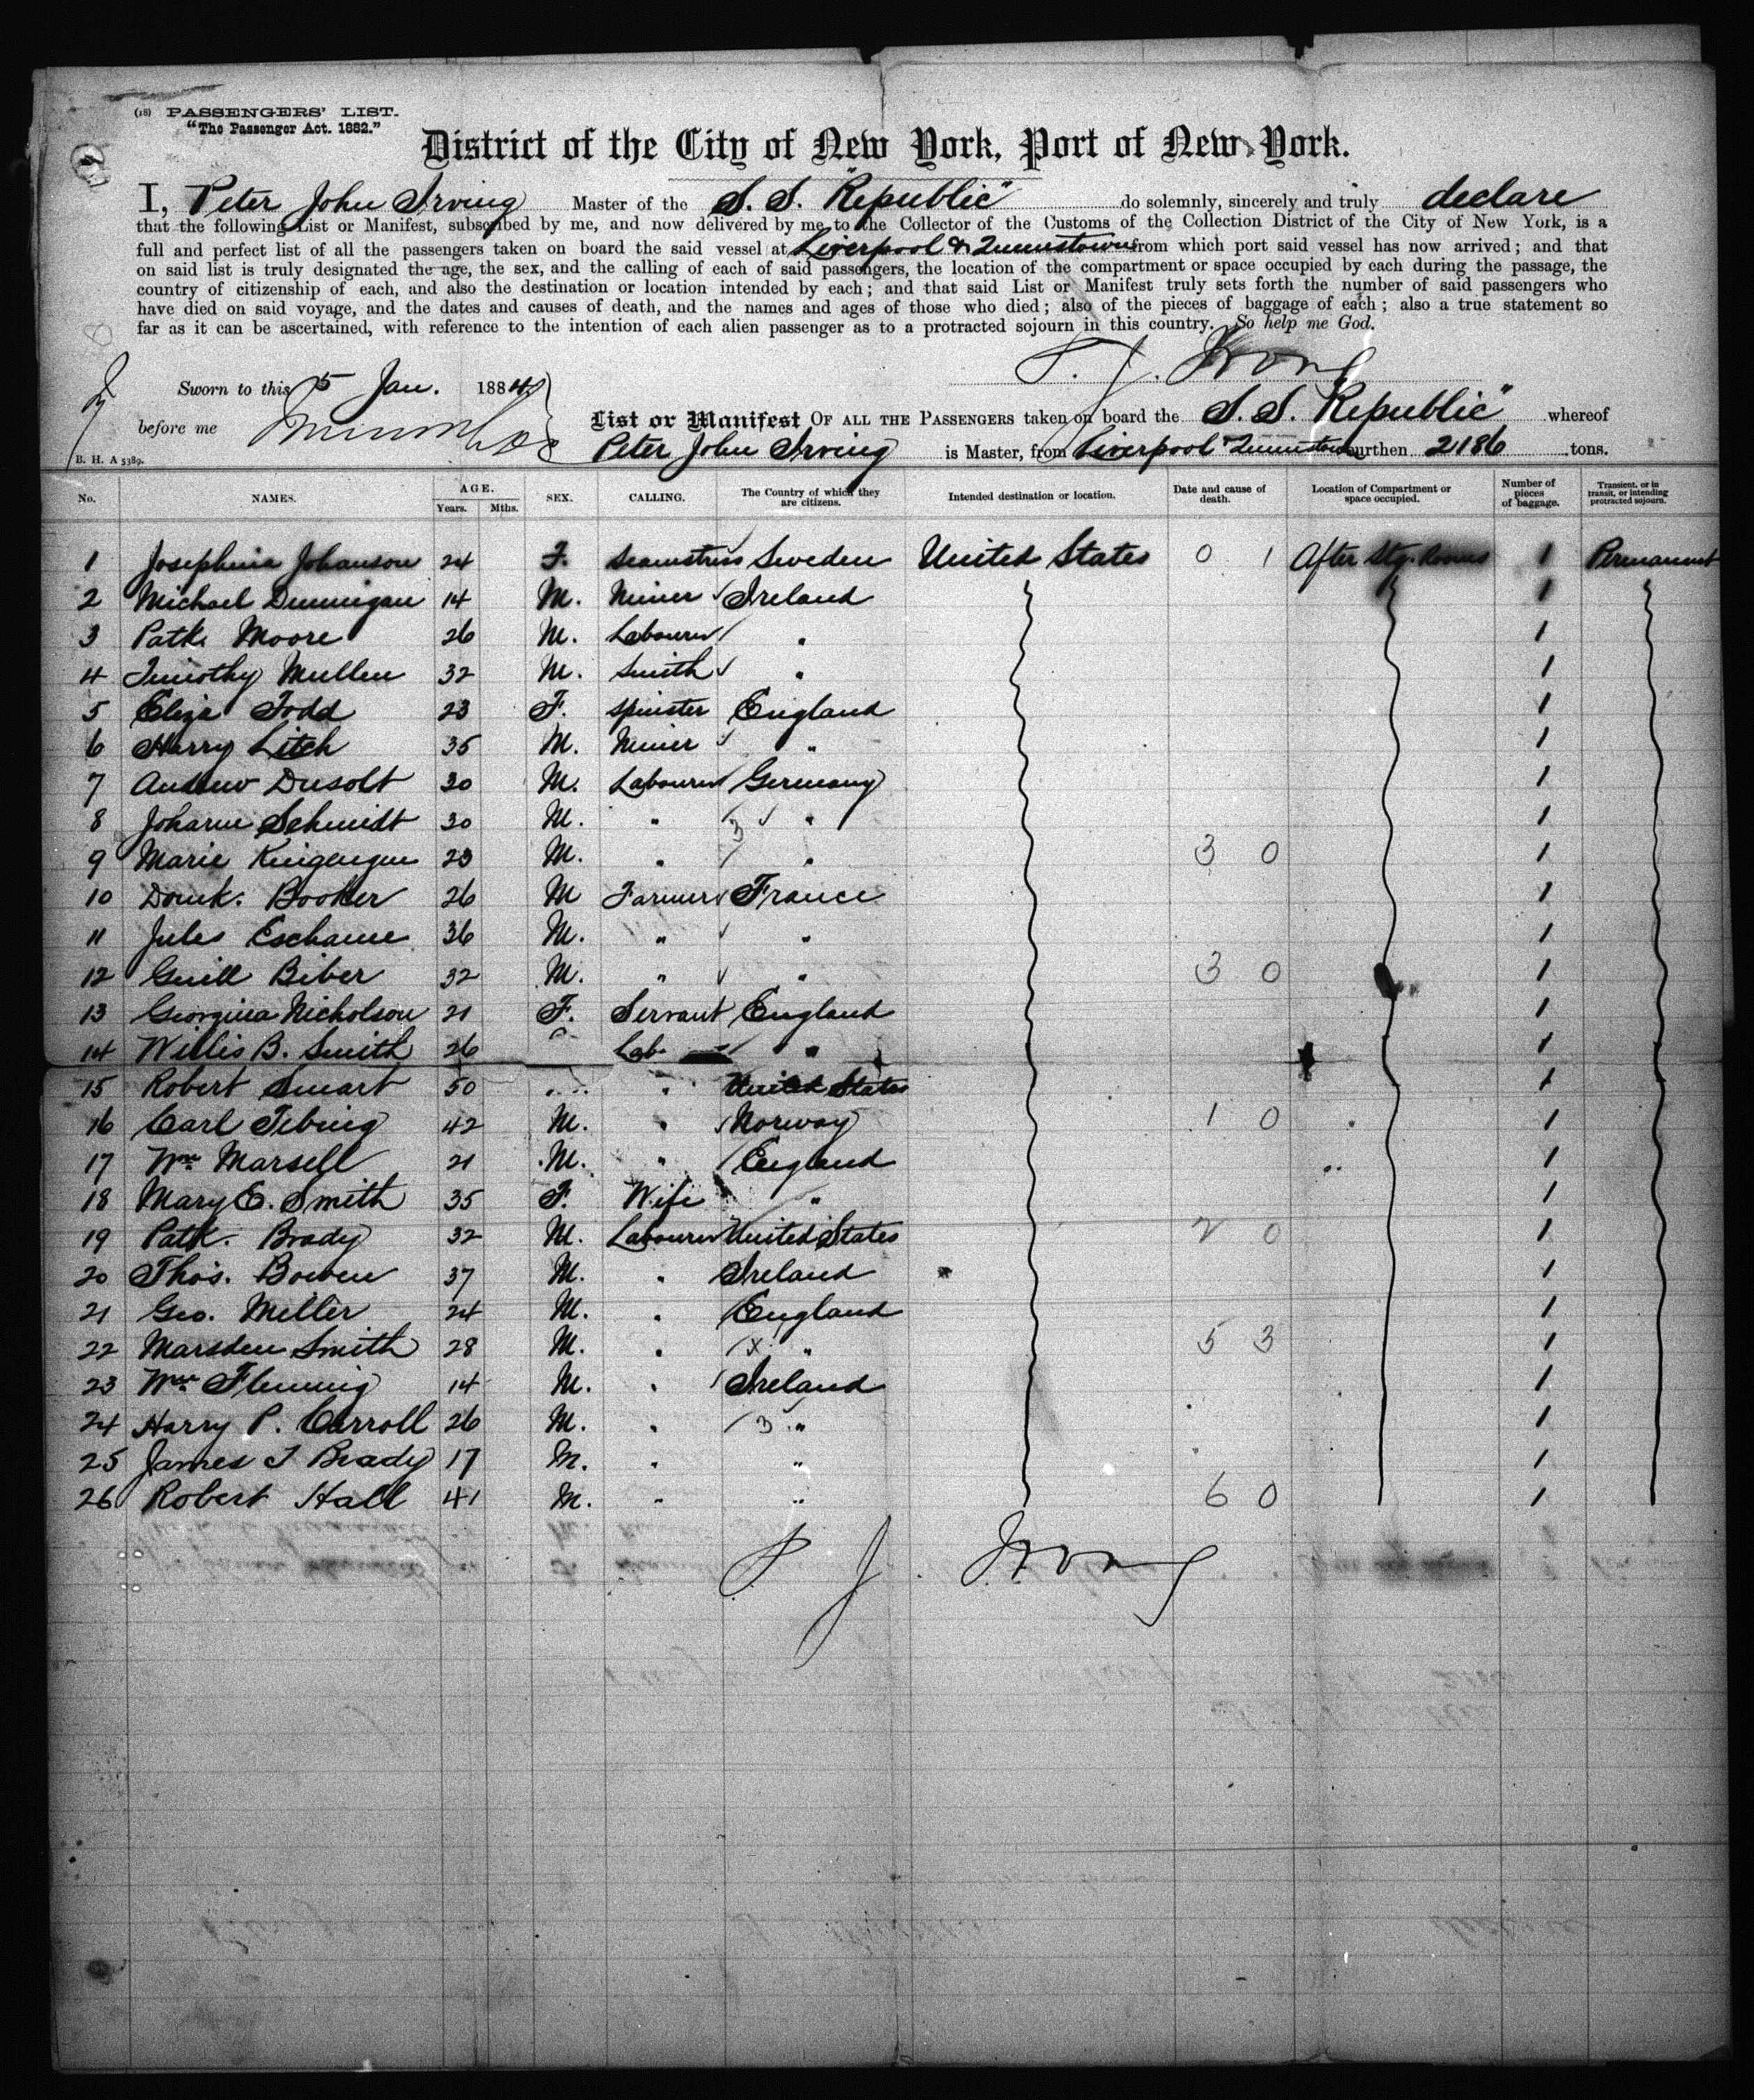 (18) PASSENGERS' LIST.
"The Passenger Act. 1882."
District of the City of New York, Port of New York.
I, Peter John Irving Master of the S. S. "Republic" do solemnly, sincerely and truly declare
that the following List or Manifest, subscribed by me, and now delivered by me to the Collector of the Customs of the Collection District of the City of New York, is a
full and perfect list of all the passengers taken on board the said vessel at Liverpool & Queenstown from which port said vessel has now arrived; and that
on said list is truly designated the age, the sex, and the calling of each of said passengers, the location of the compartment or space occupied by each during the passage, the
country of citizenship of each, and also the destination or location intended by each; and that said List or Manifest truly sets forth the number of said passengers who
have died on said voyage, and the dates and causes of death, and the names and ages of those who died; also of the pieces of baggage of each; also a true statement so
far as it can be ascertained, with reference to the intention of each alien passenger as to a protracted sojourn in this country. So help me God.
P. J. Irving
Sworn to this 5 Jan. 1884
before me
List or Manifest OF ALL THE PASSENGERS taken on board the S. S. Republic" whereof
B. H. A 5389.
Peter John Irving is Master, from Liverpool & Queenstown burthen 2186 tons.
No. NAMES. AGE. Years. Mths. SEX. CALLING. The Country of which they are citizens. Intended destination or location. Date and cause of death. Location of Compartment or space occupied. Number of pieces of baggage. Transient, or in transit, or intending protracted sojourn.
1 Josephina Johanson 24 F. Seamstress Sweden United States 0 1 After Stg. Rooms 1 Permanent
2 Michael Dunnigan 14 M. Miner Ireland 1
3 Patk. Moore 26 M. Labourer " 1
4 Timothy Mullen 32 M. Smith " 1
5 Eliza Todd 23 F. Spinster England 1
6 Harry Litch 35 M. Miner " 1
7 Andrew Dusolt 30 M. Labourer Germany 1
8 Johann Schmidt 30 M. " 3 " 1
9 Marie 23 M. " " 3 0 1
10 Domk. Booker 26 M Farmer France 1
11 Jules Eschaine 36 M. " " 1
12 Guill Biber 32 M. " " 3 0 1
13 Georgina Nicholson 21 F. Servant England 1
14 Willis B. Smith 26 Lab. " 1
15 Robert Smart 50 " United States 1
16 Carl Tebring 42 M. " Norway 1 0 1
17 Wm. Marsell 21 M. " England 1
18 Mary E. Smith 35 F. Wife " 1
19 Patk. Brady 32 M. Labourer United States 2 0 1
20 Thos. Bowen 37 M. " Ireland 1
21 Geo. Miller 24 M. " England 1
22 Marsden Smith 28 M. " X " 5 3 1
23 Wm. Fleming 14 M. " Ireland 1
24 Harry P. Carroll 26 M. " 3 " 1
25 James J Brady 17 M. " " 1
26 Robert Hall 41 M. " " 6 0 1
P J. Irving